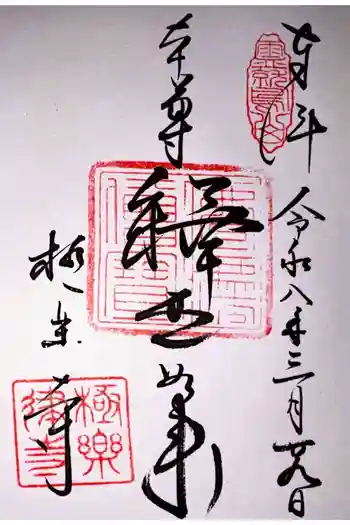 奉拝
令和八年三月廿九日
本尊
釋迦如来
極楽寺
極樂律寺